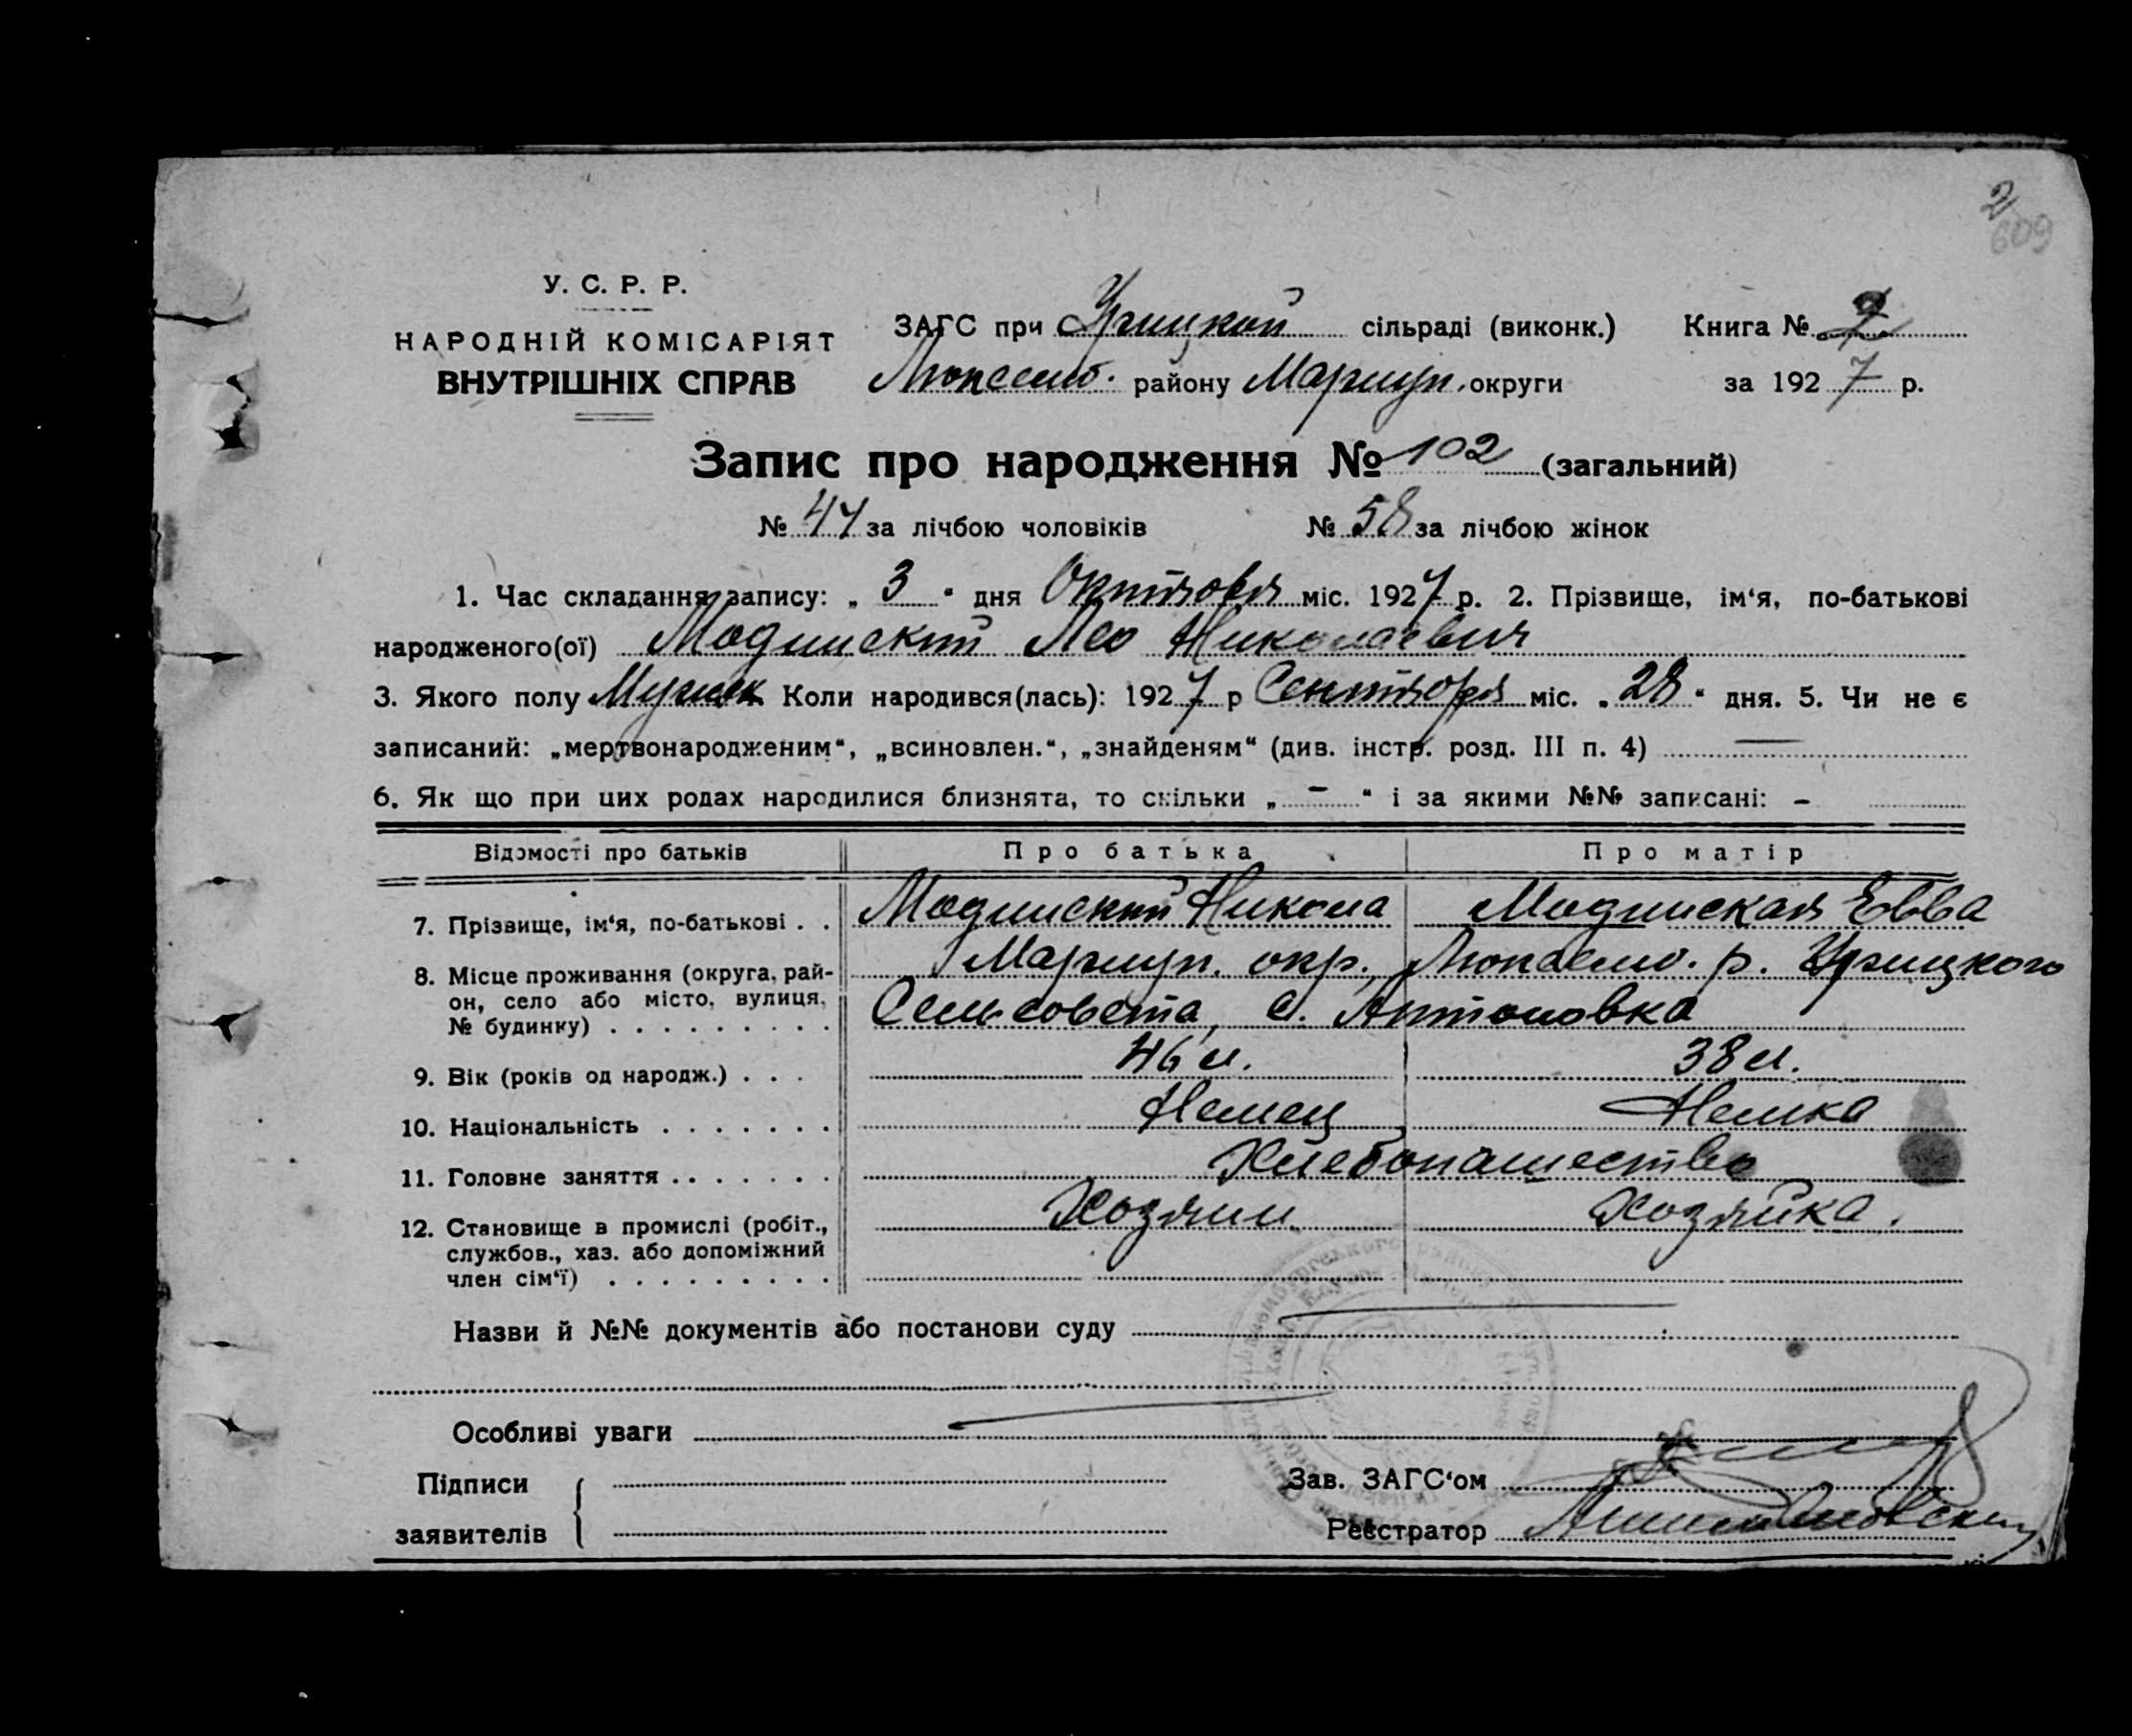 2
609
У. С. Р. Р.
НАРОДНІЙ КОМІСАРІЯТ
ВНУТРІШНІХ СПРАВ
ЗАГС при Урицкой сільраді (виконк.) Книга № 2
Люксемб. району Мариуп. округи за 1927 р.
Запис про народження № 102 (загальний)
№ 44 за лічбою чоловіків № 58 за лічбою жінок
1. Час складання запису: „ 3 " дня Октября міс. 1927 р. 2. Прізвище, ім'я, по-батькові
народженого(ої) Модинский Лео Николаевич
3. Якого полу Мужск Коли народився(лась): 1927 р Сентября міс. „ 28 " дня. 5. Чи не є
записаний: „мертвонародженим", „всиновлен.", „знайденям" (див. інстр. розд. III п. 4) —
6. Як що при цих родах народилися близнята, то скільки „ – " і за якими №№ записані: –
Відомості про батьків Про батька Про матір
7. Прізвище, ім'я, по-батькові . . Модинский Никола Модинская Евва
8. Місце проживання (округа, рай- Мариуп. окр., Люксемб. р. Урицкого
он, село або місто, вулиця, Сельсовета, с. Антоновка
№ будинку) . . . . . . . . .
9. Вік (років од народж.) . . . 46 л. 38 л.
10. Національність . . . . . . . Немец Немка
11. Головне заняття . . . . . . . Хлебопашество
12. Становище в промислі (робіт., Хозяин Хозяйка.
службов., хаз. або допоміжний
член сім'ї) . . . . . . . . .
Назви й №№ документів або постанови суду
Особливі уваги
Підписи
заявителів
Зав. ЗАГС'ом
Реєстратор